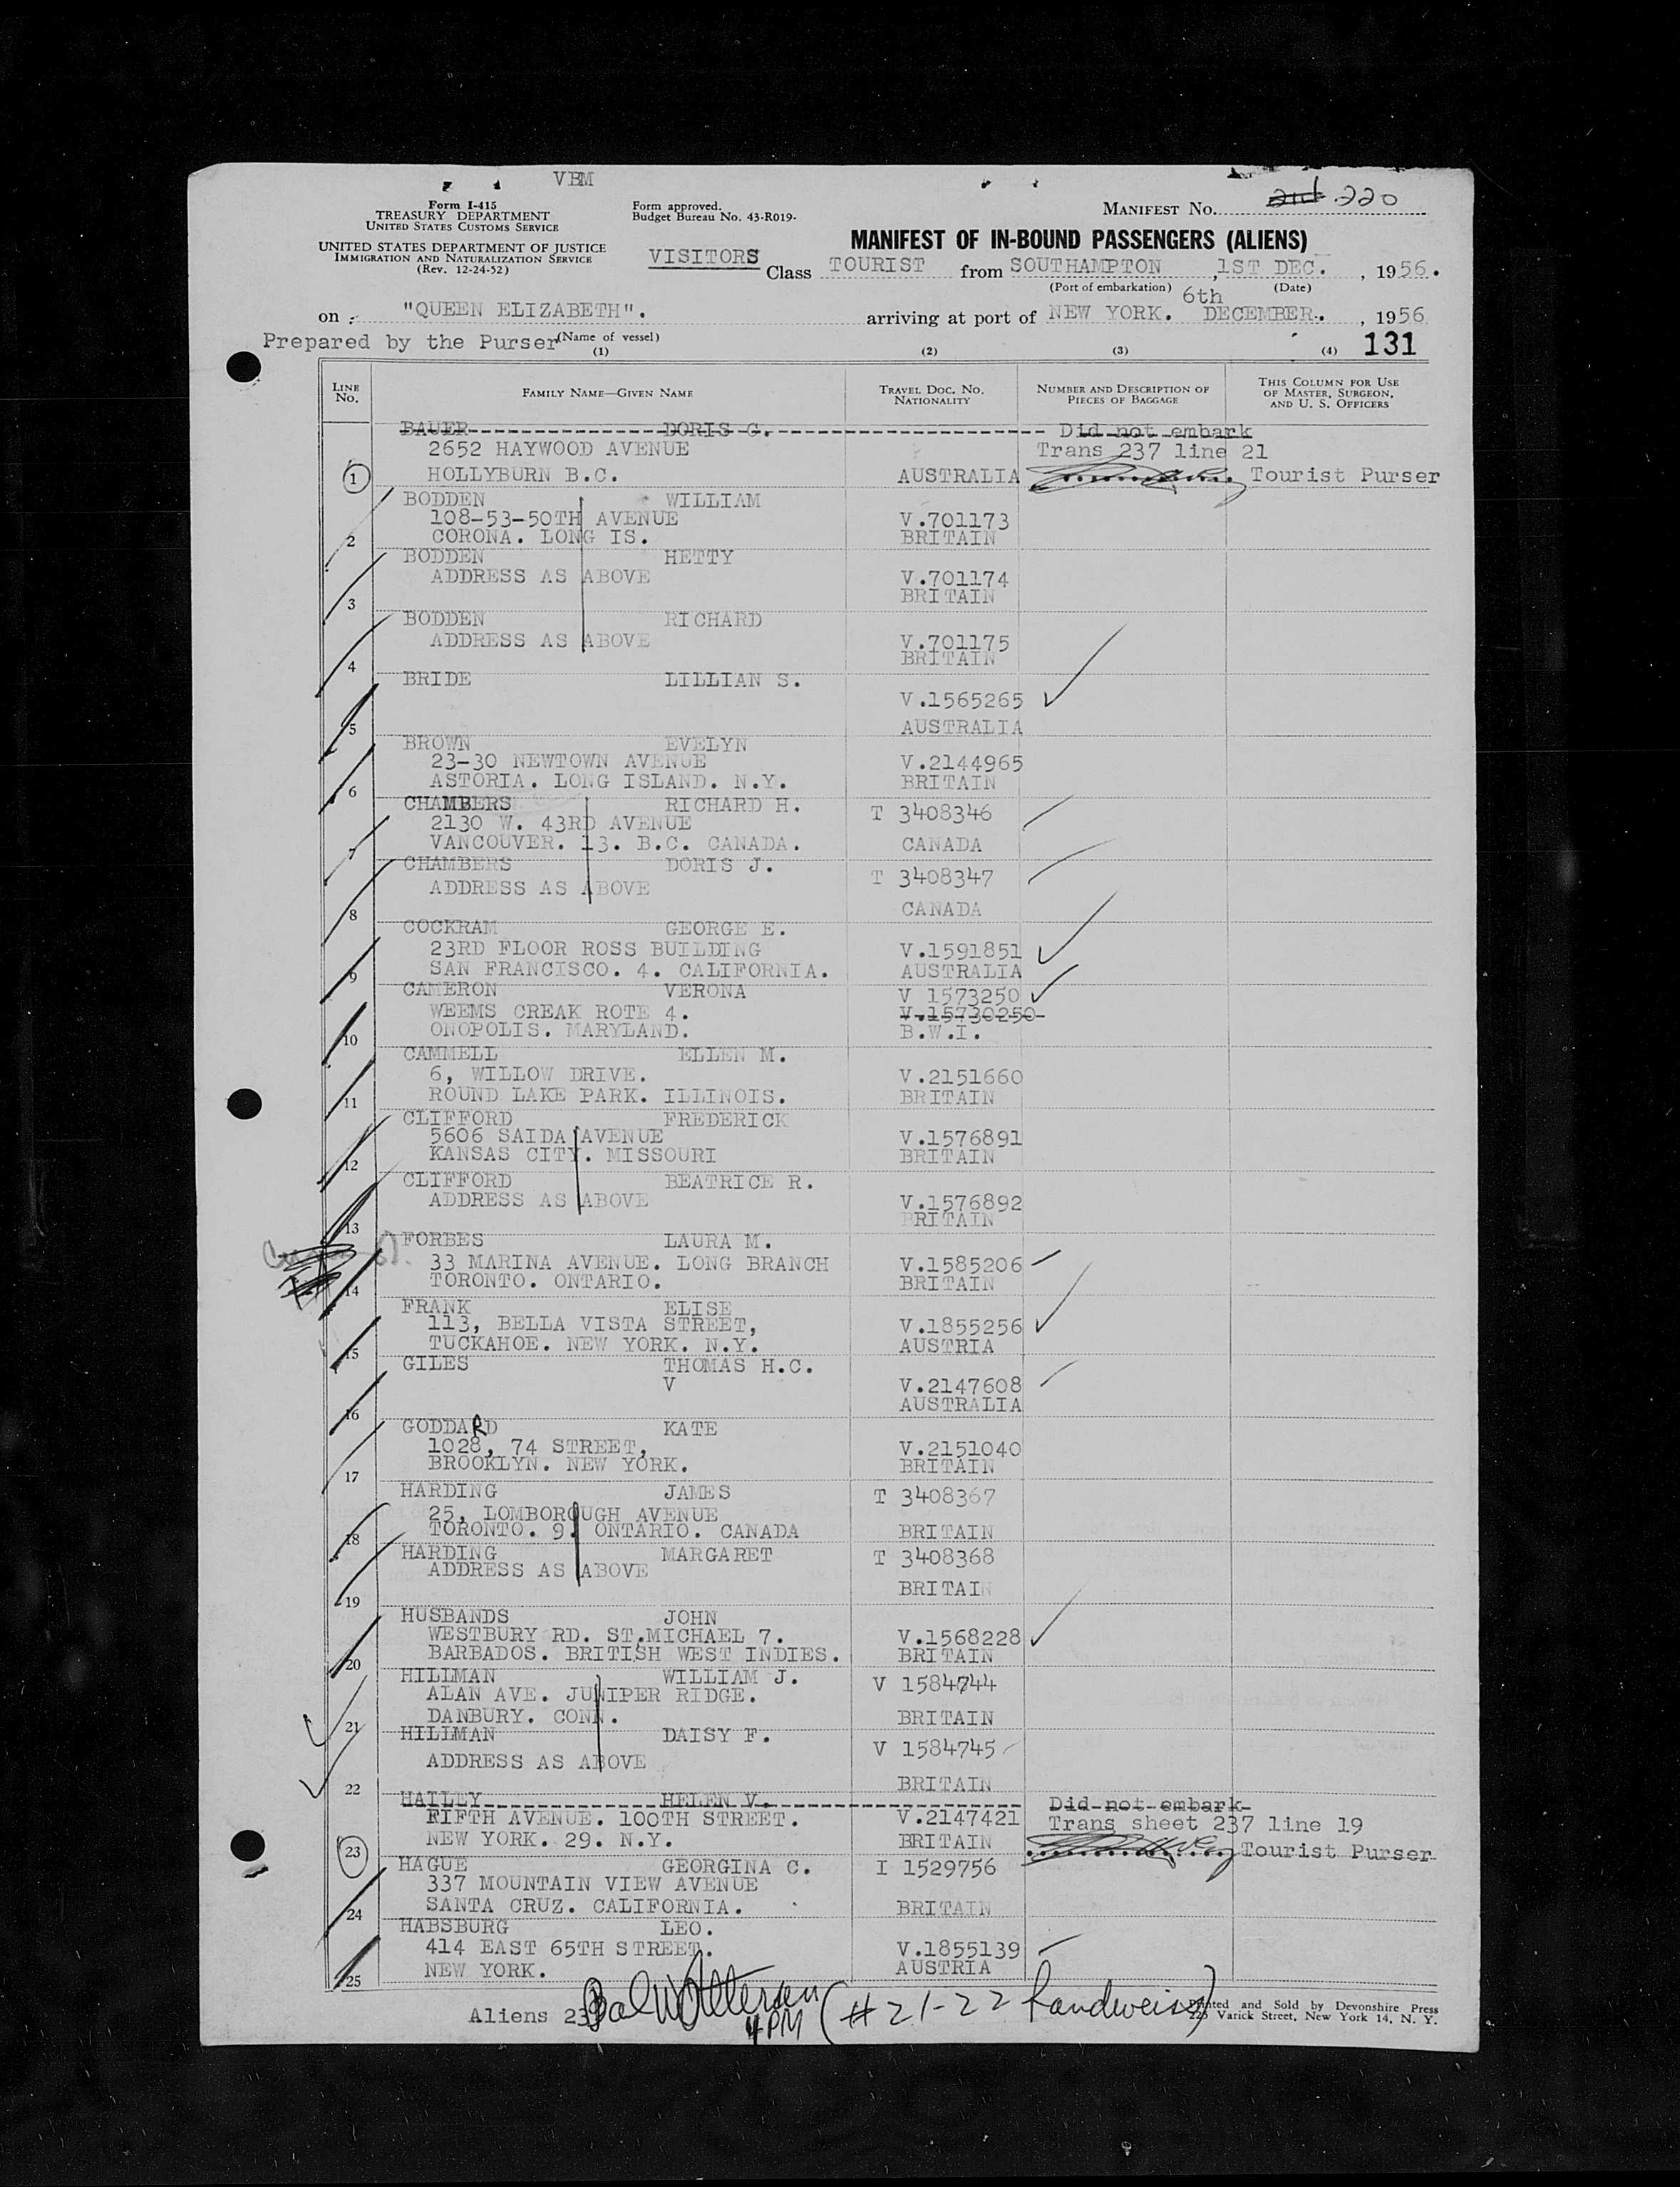 VBM
Form I-415
TREASURY DEPARTMENT
UNITED STATES CUSTOMS SERVICE
UNITED STATES DEPARTMENT OF JUSTICE
IMMIGRATION AND NATURALIZATION SERVICE
(Rev. 12-24-52)
Form approved.
Budget Bureau No. 43-R019-
MANIFEST No. 220
MANIFEST OF IN-BOUND PASSENGERS (ALIENS)
VISITORS Class TOURIST from SOUTHAMPTON , 1ST DEC. , 1956.
(Port of embarkation) (Date)
on "QUEEN ELIZABETH". arriving at port of NEW YORK. 6th DECEMBER. , 1956
Prepared by the Purser (Name of vessel)
(1) (2) (3) (4) 131
LINE No. FAMILY NAME—GIVEN NAME TRAVEL DOC. NO. NATIONALITY NUMBER AND DESCRIPTION OF PIECES OF BAGGAGE THIS COLUMN FOR USE OF MASTER, SURGEON, AND U. S. OFFICERS
BAUER DORIS G. Did not embark
2652 HAYWOOD AVENUE Trans 237 line 21
1 HOLLYBURN B.C. AUSTRALIA Tourist Purser
BODDEN WILLIAM
108-53-50TH AVENUE V.701173
2 CORONA. LONG IS. BRITAIN
BODDEN HETTY
ADDRESS AS ABOVE V.701174
3 BRITAIN
BODDEN RICHARD
ADDRESS AS ABOVE V.701175
4 BRITAIN
BRIDE LILLIAN S.
V.1565265
5 AUSTRALIA
BROWN EVELYN
23-30 NEWTOWN AVENUE V.2144965
6 ASTORIA. LONG ISLAND. N.Y. BRITAIN
CHAMBERS RICHARD H. T 3408346
2130 W. 43RD AVENUE
7 VANCOUVER. 13. B.C. CANADA. CANADA
CHAMBERS DORIS J. T 3408347
ADDRESS AS ABOVE
8 CANADA
COCKRAM GEORGE E.
23RD FLOOR ROSS BUILDING V.1591851
9 SAN FRANCISCO. 4. CALIFORNIA. AUSTRALIA
CAMERON VERONA V 1573250
WEEMS CREAK ROTE 4. V.15730250
10 ONOPOLIS. MARYLAND. B.W.I.
CAMMELL ELLEN M.
6, WILLOW DRIVE. V.2151660
11 ROUND LAKE PARK. ILLINOIS. BRITAIN
CLIFFORD FREDERICK
5606 SAIDA AVENUE V.1576891
12 KANSAS CITY. MISSOURI BRITAIN
CLIFFORD BEATRICE R.
ADDRESS AS ABOVE V.1576892
13 BRITAIN
FORBES LAURA M.
33 MARINA AVENUE. LONG BRANCH V.1585206
14 TORONTO. ONTARIO. BRITAIN
FRANK ELISE
113, BELLA VISTA STREET, V.1855256
15 TUCKAHOE. NEW YORK. N.Y. AUSTRIA
GILES THOMAS H.C.
V V.2147608
16 AUSTRALIA
GODDARD KATE
1028, 74 STREET, V.2151040
17 BROOKLYN. NEW YORK. BRITAIN
HARDING JAMES T 3408367
25, LOMBOROUGH AVENUE
18 TORONTO. 9. ONTARIO. CANADA BRITAIN
HARDING MARGARET T 3408368
ADDRESS AS ABOVE
19 BRITAIN
HUSBANDS JOHN
WESTBURY RD. ST.MICHAEL 7. V.1568228
20 BARBADOS. BRITISH WEST INDIES. BRITAIN
HILLMAN WILLIAM J. V 1584744
ALAN AVE. JUNIPER RIDGE.
21 DANBURY. CONN. BRITAIN
HILLMAN DAISY F. V 1584745
ADDRESS AS ABOVE
22 BRITAIN
HAILEY HELEN V. Did not embark
FIFTH AVENUE. 100TH STREET. V.2147421 Trans sheet 237 line 19
23 NEW YORK. 29. N.Y. BRITAIN Tourist Purser
HAGUE GEORGINA C. I 1529756
337 MOUNTAIN VIEW AVENUE
24 SANTA CRUZ. CALIFORNIA. BRITAIN
HABSBURG LEO.
414 EAST 65TH STREET. V.1855139
25 NEW YORK. AUSTRIA
Aliens 23
4PM (#21-22
Printed and Sold by Devonshire Press
225 Varick Street, New York 14, N. Y.